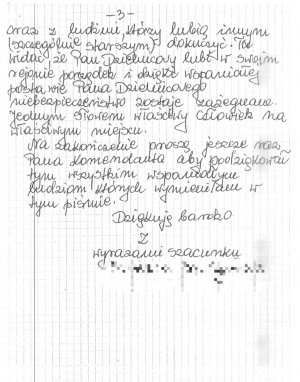 - 3 -
oraz z ludźmi, którzy lubią innym
(szczególnie starszym) dokuczyć. To
widać, że Pan Dzielnicowy lubi w swoim
rejonie porządek i dzięki wspaniałej
postawie Pana Dzielnicowego
niebezpieczeństwo zostaje zażegnane.
Jednym słowem właściwy człowiek na
właściwym miejscu.
Na zakończenie proszę jeszcze raz
Pana Komendanta aby podziękował
tym wszystkim wspaniałym
ludziom których wymieniłam w
tym piśmie.
Dziękuję bardzo
Z
wyrazami szacunku